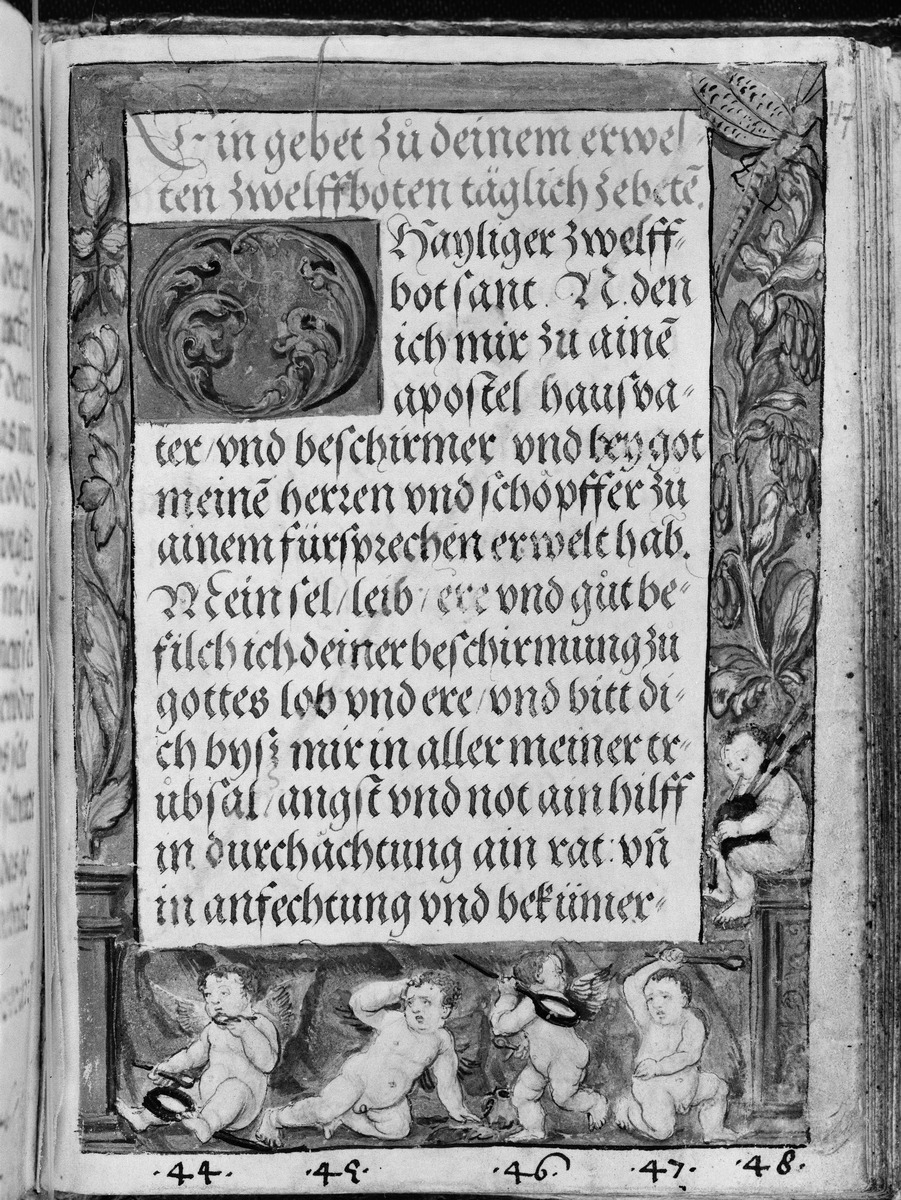 47
Ein gebet zů deinem erwel-
ten zwelffboten täglich zebetē.
O Hayliger zwelff-
bot sant. N. den
ich mir zu ainē
apostel hausva-
ter/vnd beschirmer vnd bey got
meinē herren vnd schöpffer zů
ainem fürsprechen erwelt hab.
Mein sel/leib/ere vnd gůt be-
filch ich deiner beschirmung zů
gottes lob vnd ere/vnd bitt di-
ch bysz mir in aller meiner tr-
ůbsal/angst vnd not ain hilff
in durchächtung ain rat: vn̄
in anfechtung vnd bekümer-
·44· ·45· ·46· ·47· ·48·